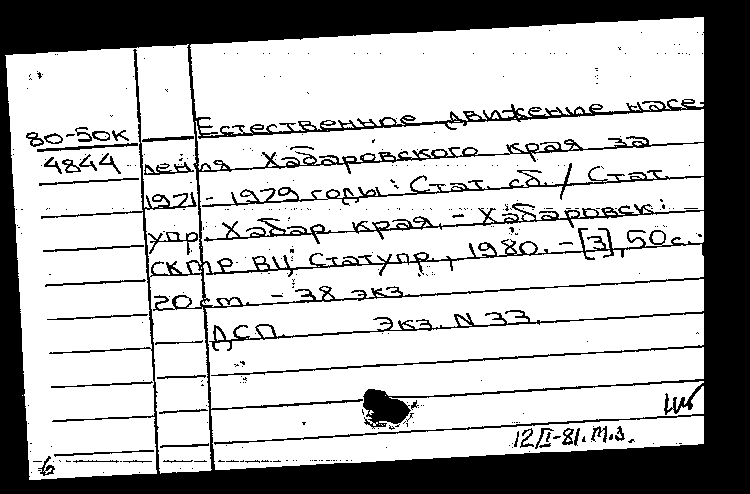 80-50к Естественное движение насе-
4844 ления Хабаровского края за
1971 - 1979 годы: Стат. сб. / Стат.
упр. Хабар. края. - Хабаровск: -
СКТР ВЦ Статупр., 1980. - [3], 50 с.;
20 см. - 38 экз.
ДСП. Экз. N 33.
12/II-81. М.З.
6